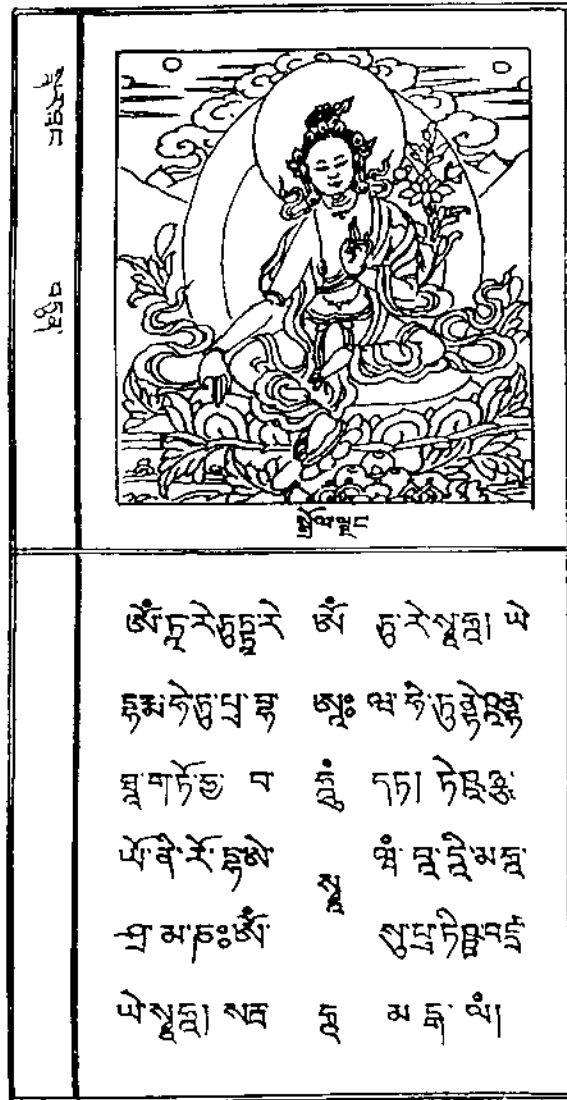 སྒྲོལ་ལྗང
ཨོཾ་ཏཱ་རེ་ཏུཏྟཱ་རེ ཨོཾ ཏུ་རེ་སྭཱ་ཧཱ། ཡེ
དྷརྨ་ཧེ་ཏུ་པྲ་བྷ ཨཱཿ ཝ་ཧེ་ཏུནྟེ་ཥཱནྟ
ཐཱ་ག་ཏོ་ཧྱ་ བ ཧཱུྃ དཏ། ཏེ་ཥཱཉྩ་
ཡོ་ནི་རོ་དྷ་ཨེ སྭཱ ཝཾ་བཱ་དཱི་མ་ཧཱ
ཤྲ་མ་ཎཿཨོཾ སུ་པྲ་ཏིཥྛ་བཛྲ
ཡེ་སྭཱ་ཧཱ། སརྦ ཧཱ མ་ངྒ་ ལཾ།